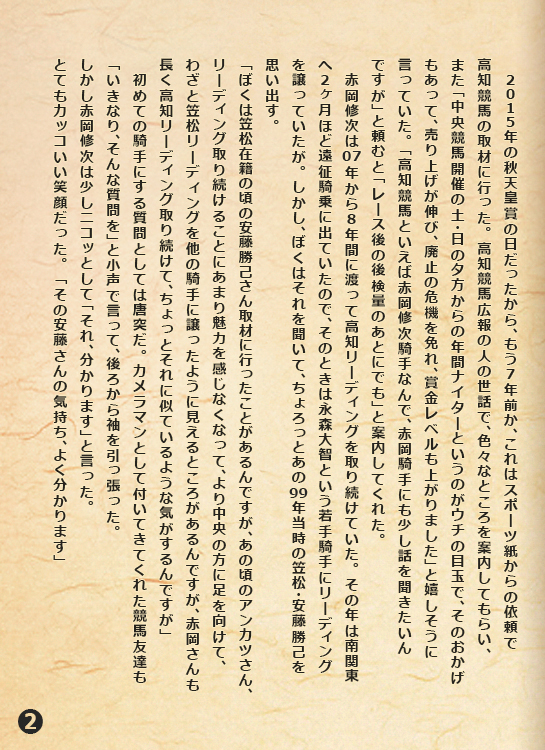 ２０１５年の秋天皇賞の日だったから、もう７年前か、これはスポーツ紙からの依頼で
高知競馬の取材に行った。高知競馬広報の人の世話で、色々なところを案内してもらい、
また「中央競馬開催の土・日の夕方からの年間ナイターというのがウチの目玉で、そのおかげ
もあって、売り上げが伸び、廃止の危機を免れ、賞金レベルも上がりました」と嬉しそうに
言っていた。「高知競馬といえば赤岡修次騎手なんで、赤岡騎手にも少し話を聞きたいん
ですが」と頼むと「レース後の後検量のあとにでも」と案内してくれた。
赤岡修次は０７年から８年間に渡って高知リーディングを取り続けていた。その年は南関東
へ２ヶ月ほど遠征騎乗に出ていたので、そのときは永森大智という若手騎手にリーディング
を譲っていたが。しかし、ぼくはそれを聞いて、ちょろっとあの９９年当時の笠松・安藤勝己を
思い出す。
「ぼくは笠松在籍の頃の安藤勝己さん取材に行ったことがあるんですが、あの頃のアンカツさん、
リーディング取り続けることにあまり魅力を感じなくなって、より中央の方に足を向けて、
わざと笠松リーディングを他の騎手に譲ったように見えるところがあるんですが、赤岡さんも
長く高知リーディング取り続けて、ちょっとそれに似ているような気がするんですが」
初めての騎手にする質問としては唐突だ。カメラマンとして付いてきてくれた競馬友達も
「いきなり、そんな質問を」と小声で言って、後ろから袖を引っ張った。
しかし赤岡修次は少しニコッとして「それ、分かります」と言った。
とてもカッコいい笑顔だった。「その安藤さんの気持ち、よく分かります」
2